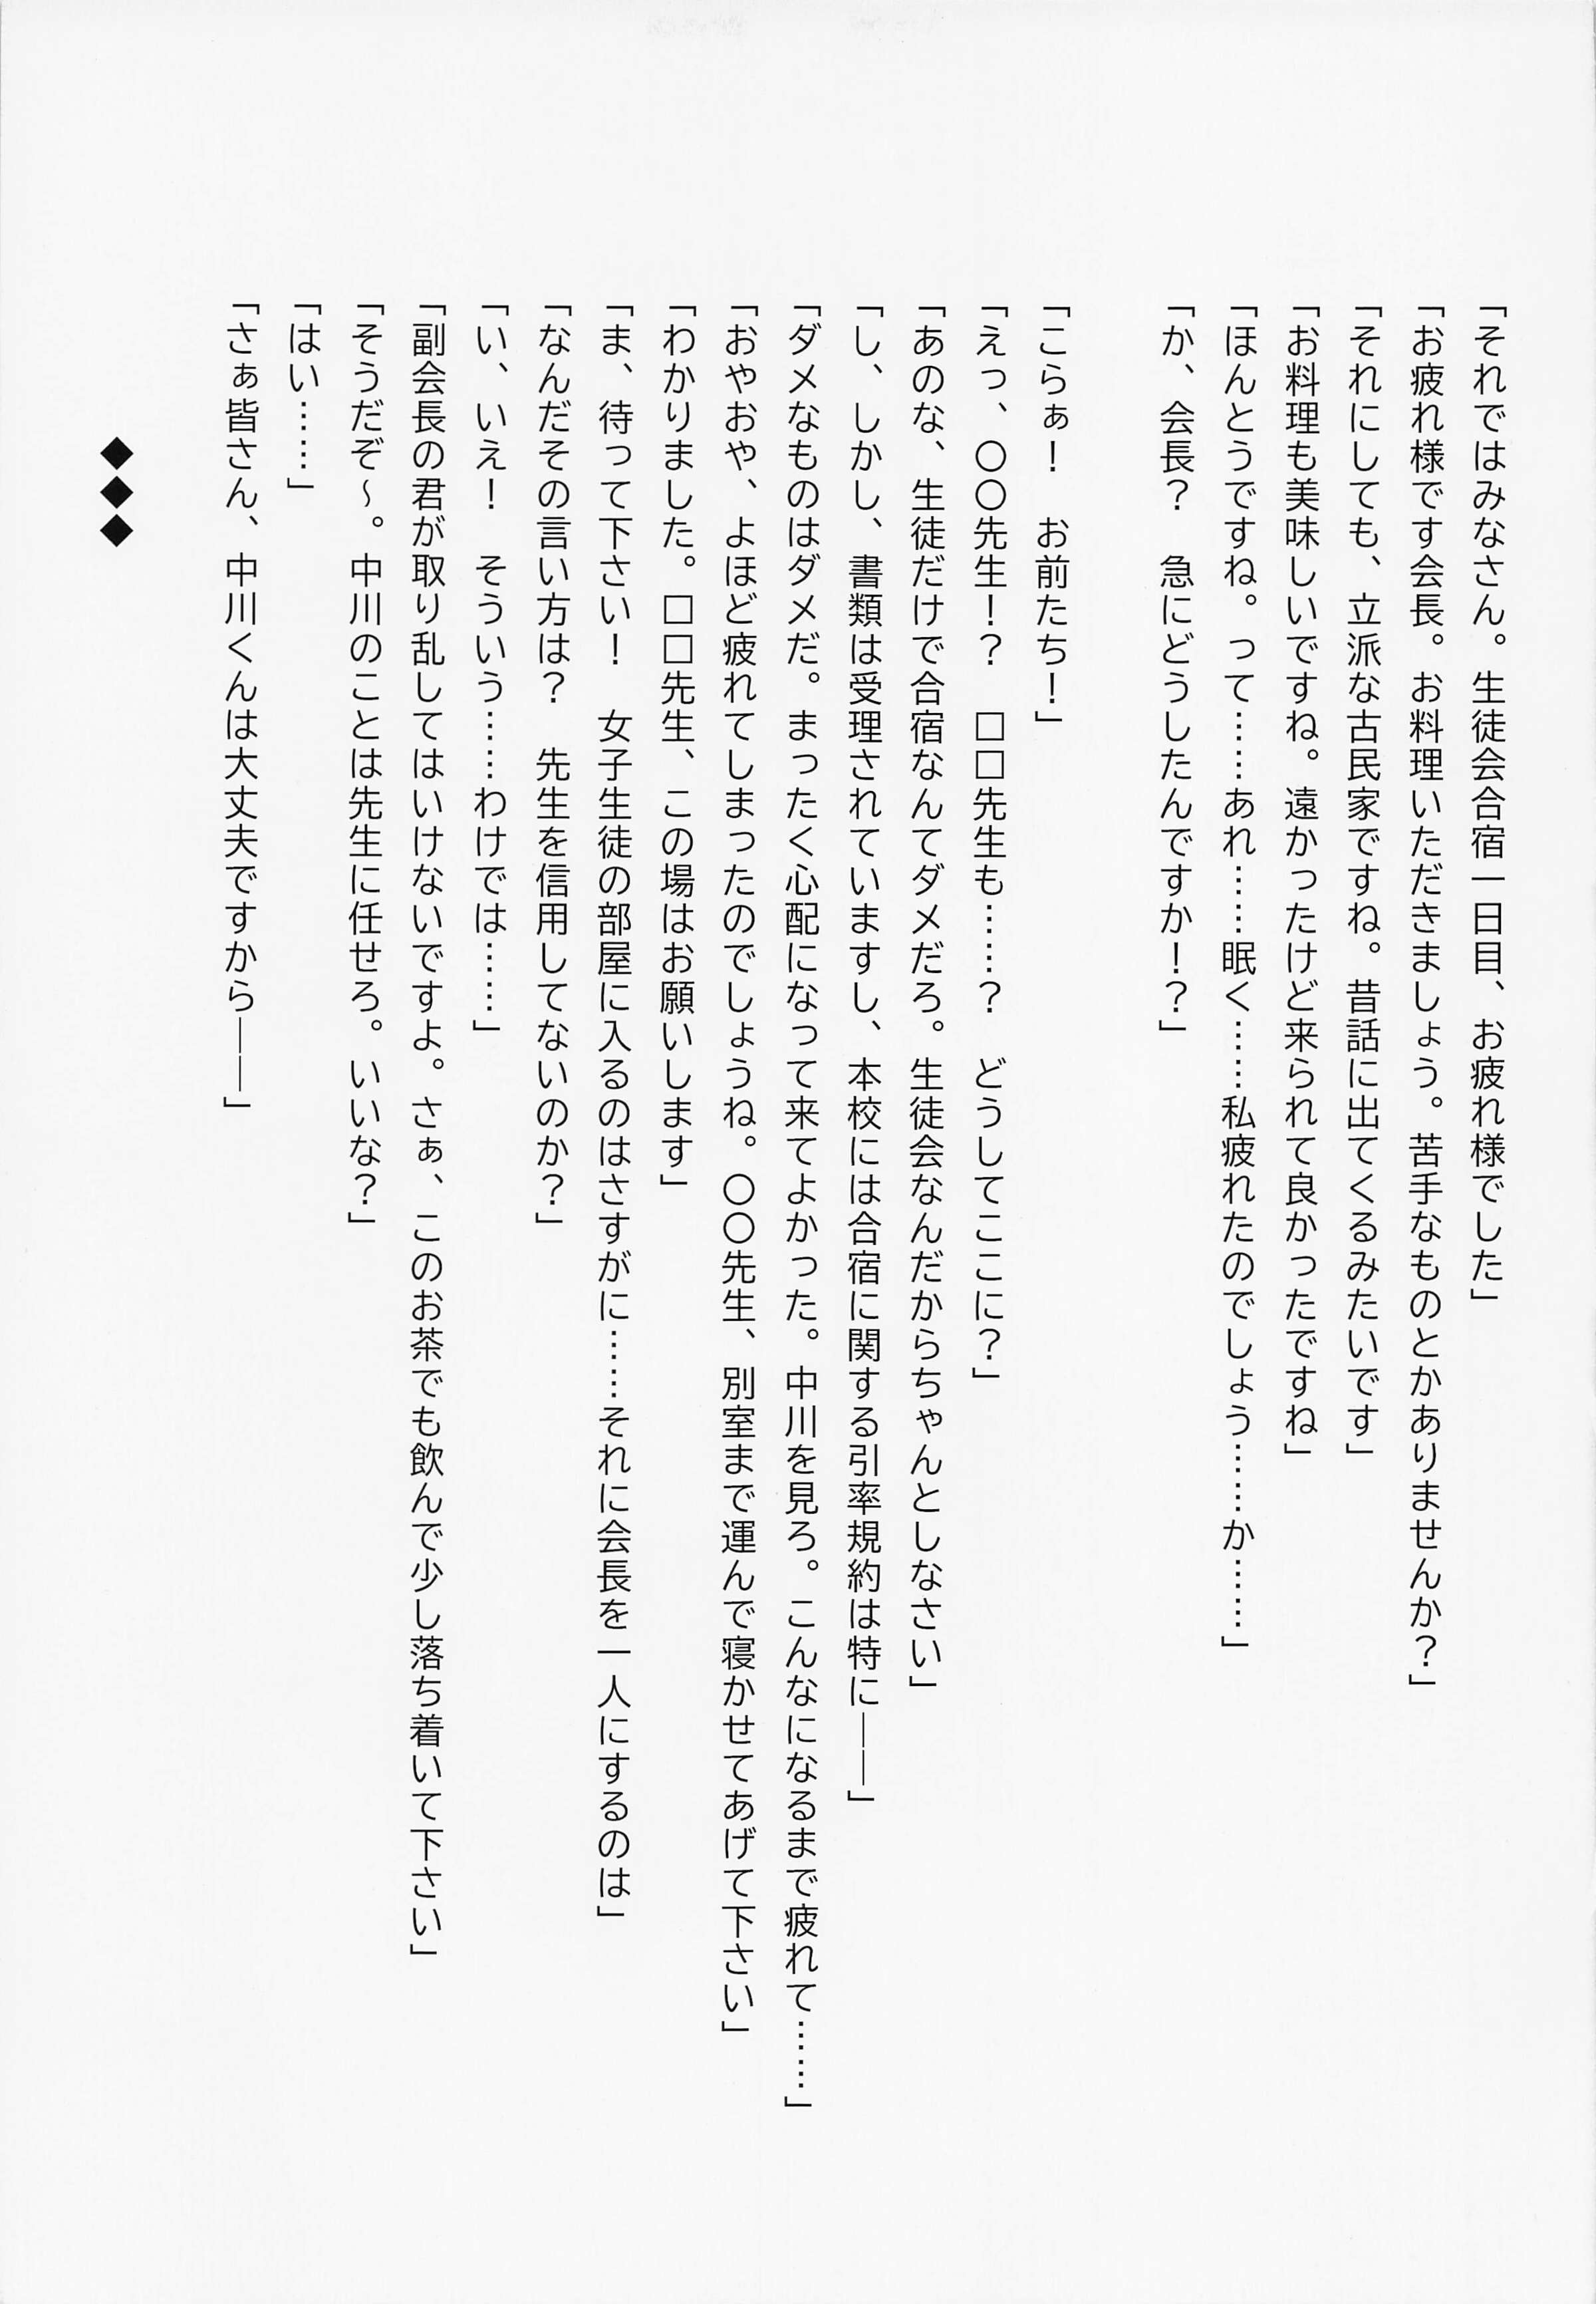 「それではみなさん。生徒会合宿一日目、お疲れ様でした」
「お疲れ様です会長。お料理いただきましょう。苦手なものとかありませんか？」
「それにしても、立派な古民家ですね。昔話に出てくるみたいです」
「お料理も美味しいですね。遠かったけど来られて良かったですね」
「ほんとうですね。って……あれ……眠く……私疲れたのでしょう……か……」
「か、会長？　急にどうしたんですか！？」
「こらぁ！　お前たち！」
「えっ、〇〇先生！？　□□先生も……？　どうしてここに？」
「あのな、生徒だけで合宿なんてダメだろ。生徒会なんだからちゃんとしなさい」
「し、しかし、書類は受理されていますし、本校には合宿に関する引率規約は特に――」
「ダメなものはダメだ。まったく心配になって来てよかった。中川を見ろ。こんなになるまで疲れて……」
「おやおや、よほど疲れてしまったのでしょうね。〇〇先生、別室まで運んで寝かせてあげて下さい」
「わかりました。□□先生、この場はお願いします」
「ま、待って下さい！　女子生徒の部屋に入るのはさすがに……それに会長を一人にするのは」
「なんだその言い方は？　先生を信用してないのか？」
「い、いえ！　そういう……わけでは……」
「副会長の君が取り乱してはいけないですよ。さぁ、このお茶でも飲んで少し落ち着いて下さい」
「そうだぞ～。中川のことは先生に任せろ。いいな？」
「はい……」
「さぁ皆さん、中川くんは大丈夫ですから――」
◆◆◆